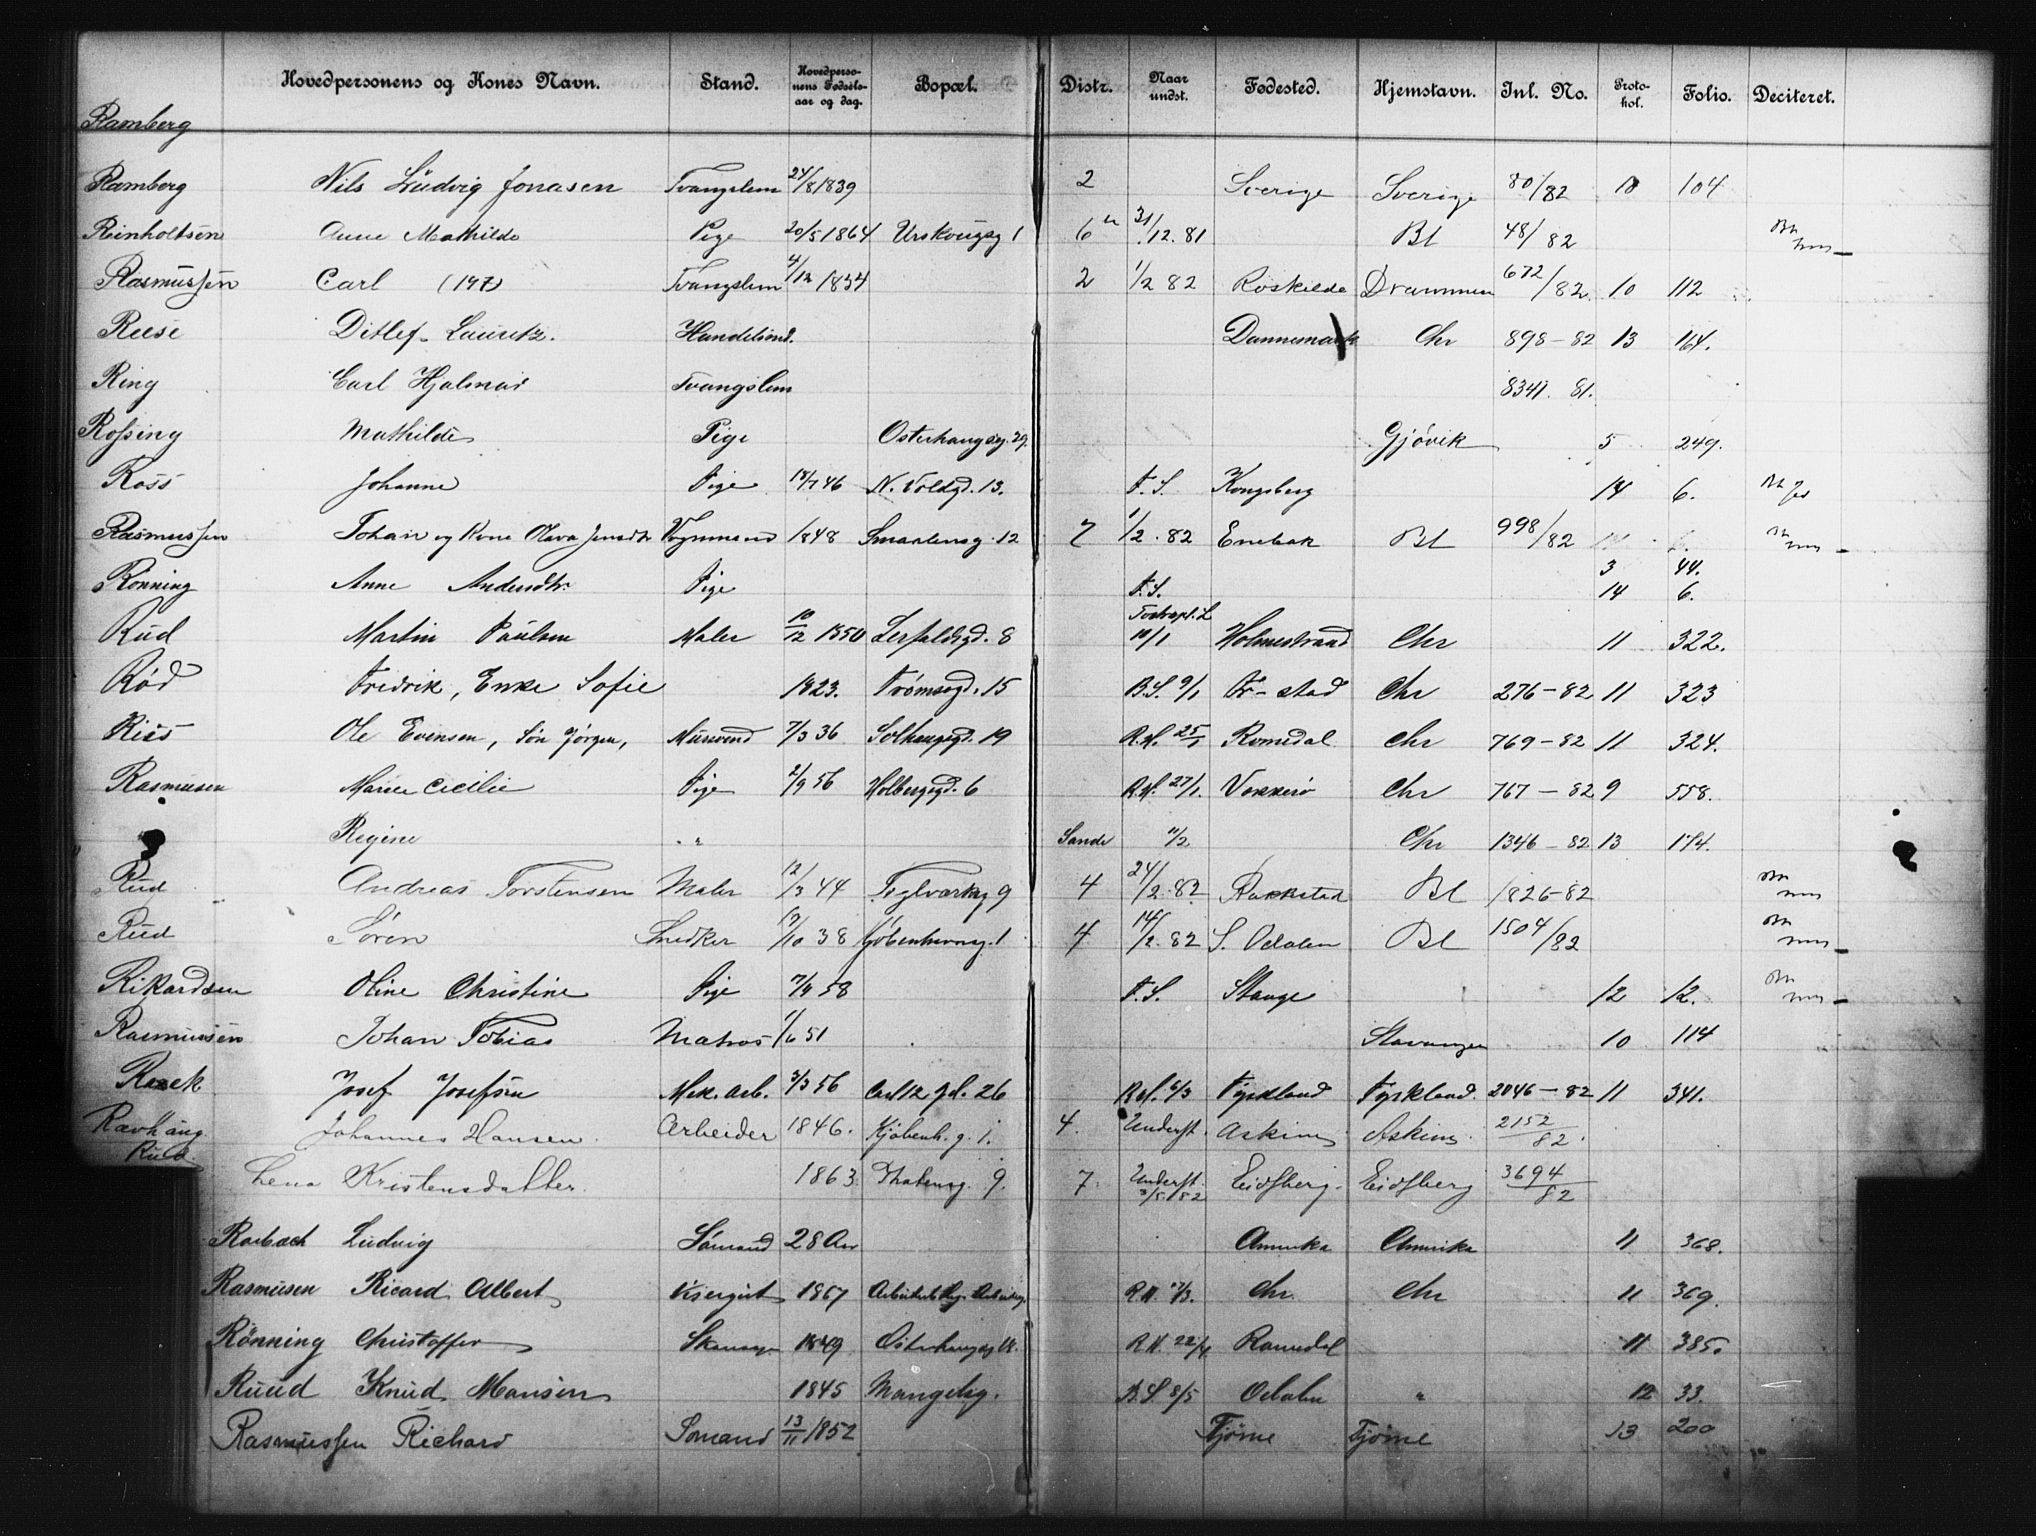 Hovedpersonens og Kones Navn. Stand. Hovedpersonens Fødselsaar og dag. Bopæl. Distr. Naar undst. Fødested. Hjemstavn. Inl. No. Protokol. Folio. Deciteret.
Ramberg
Ramberg Nils Ludvig Jonasen Tvangslem 24/8 1839 2 Sverige Sverige 80/82 10 104
Reinholtsen Anne Mathilde Pige 20/5 1864 Urskougsg 1 6 31/12. 81 Bl 48/82
Rasmussen Carl (197) Tvangslem 4/12 1834 2 1/2 82 Roskilde Drammen 672/82 10 112
Reese Ditlef Lauritz. Handelsmd. Dannemark Chr 898-82 13 164.
Ring Carl Hjalmar Tvangslem 8341. 81.
Rossing Mathilde Pige Osterhausg. 29. Gjøvik 5 249.
Ross Johanne Pige 18/7 46 N. Voldgd. 13. F.S. Kongsberg 14 6.
Rasmussen Johan og Kone Olava Jensdtr Vognmand 1848 Smaalensg. 12 7 1/2. 82 Enebak Bl 998/82
3 44.
Rönning Anne Andersdtr. Pige F.S. 14 6.
Rud Martin Paulsen Maler 10/12 1850 Lerfaldsgd. 8 10/1 Holmestrand Chr 11 322.
Rød Fredrik, Enke Sofie 1823. Trømsøgd. 15 B.S. 9/1 Fr-stad Chr 276-82 11 323
Riis Ole Evensen, Søn Jørgen, Mursvend 7/3 36 Solhaugsgd. 19 R.H. 25/1 Romedal Chr 769-82 11 324.
Rasmusen Marie Cicilie Pige 2/9 56 Holbergsgd. 6 R.H. 27/1. Vækkerø Chr 767-82 9 558.
Regine " Sande 11/2 Chr 1346-82 13 174.
Rud Andreas Torstensen Maler 12/3 44 Teglværksg 9 4 24/2. 82 Rakkestad Bl 1826-82
Rud Søren Snedker 17/10 38 Kjøbenhavnsg. 1 4 14/2. 82 S. Odalen Bl 1504/82
Rikardsen Oline Christine Pige 7/4 58 F.S. Stange 12 12.
Rasmussen Johan Tobias Matros 1/6 51 Stavanger 10 114
Josef Josefsen Mek. Arb. 3/3 56 Carl 12 gd. 26 R.H. 6/3 Tyskland Tyskland. 2046-82 11 341.
Ravhaug Johannes Hansen. Arbeider 1846. Kjøbenh. g. 1. 4. Underst. Askim Askim. 2152/82.
Rud. Lena Kristensdatter. 1863. 9. 7. Underst. 3/5 82 Eidsberg. Eidsberg 3694/82
Rorbach Ludvig Sømand 28 Aar Amerika Amerika 11 368.
Rasmusen Ricard Albert Visergut 1867 R.H. 17/3. Chr. Chr 11 369.
Rønning Christoffer 1849 R.H. 22/4. Romedal 11 385.
Ruud Knud Hansen 1845 Mangelsg. B.S. 8/5 Odalen " 12 33.
Rasmussen Richard Sømand 13/11 1852 Tjøme Tjøme 13 200